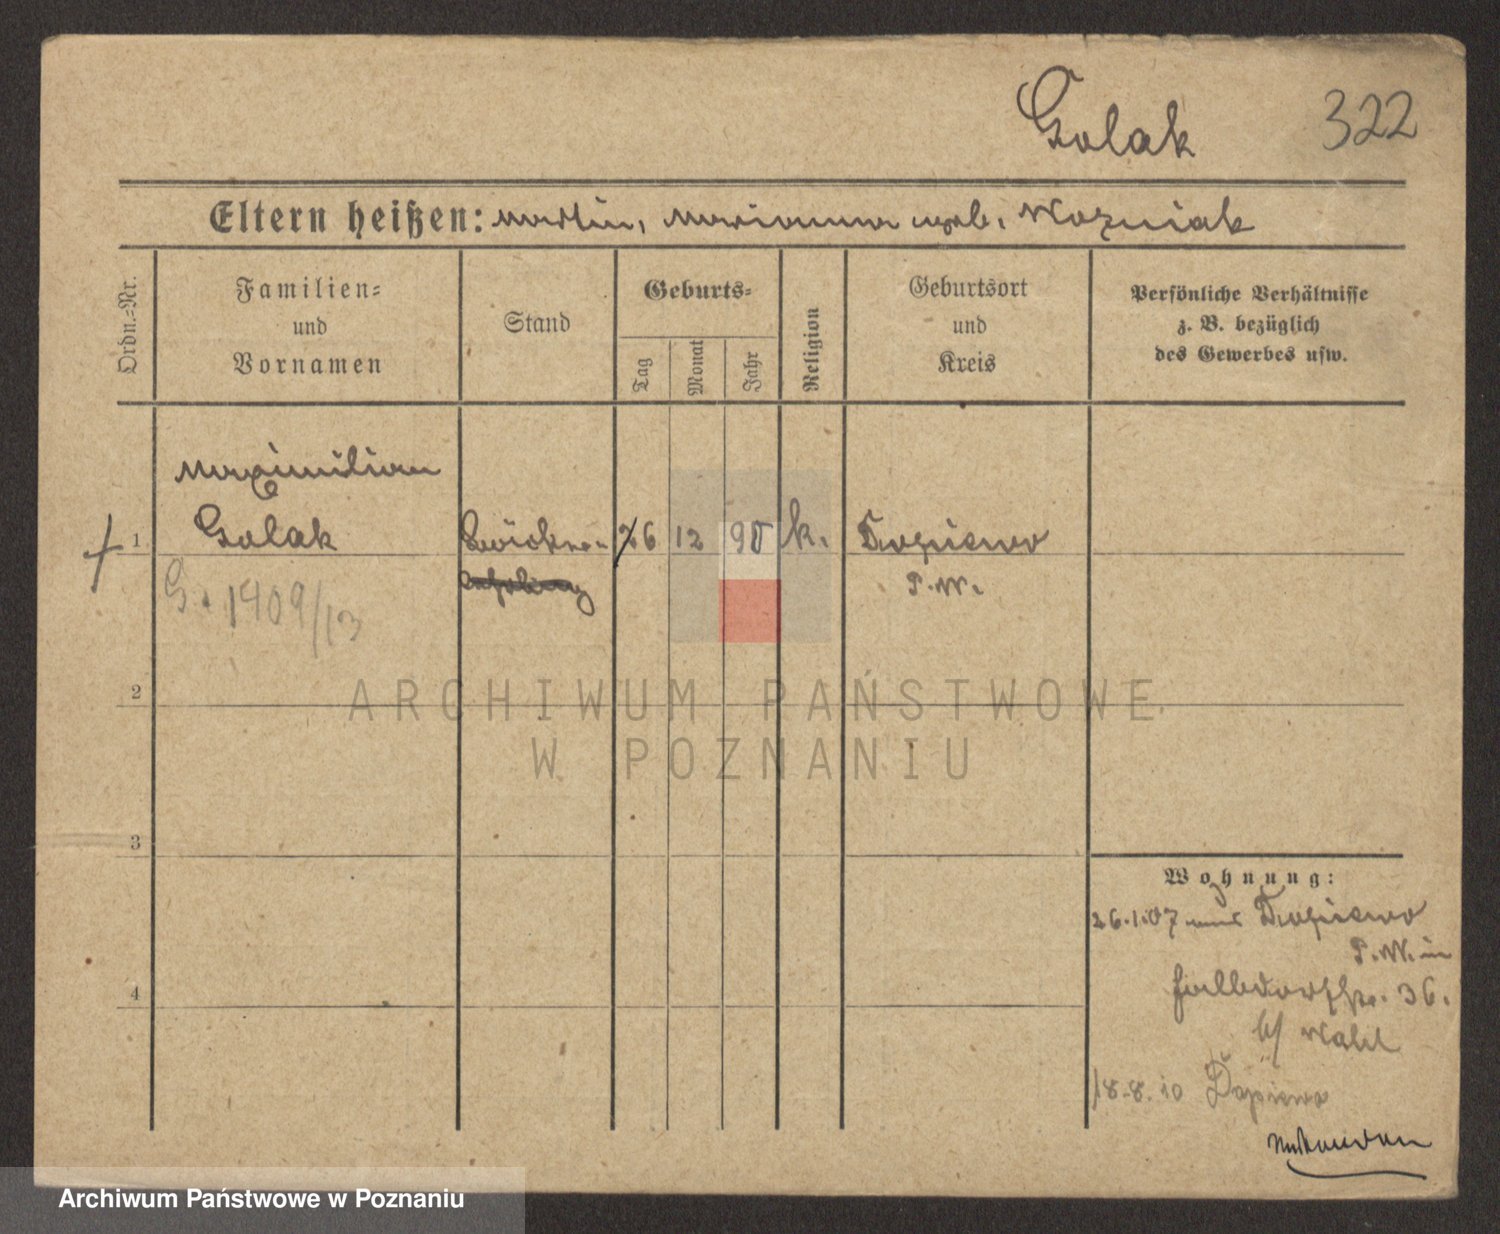 Golak 322
Eltern heißen: Martin, Marianna geb. Wozniak
Ordn.=Nr.
Familien=
und
Vornamen
Stand
Geburts=
Tag
Monat
Jahr
Religion
Geburtsort
und
Kreis
Persönliche Verhältnisse
z. B. bezüglich
des Gewerbes usw.
Maximilian
1 Golak 26 12 90 k. Dopiewo
P.W.
G. 1409/13
2
3
4
Wohnung:
26.1.07 aus Dopiewo
P.W. in
36.
18.8.10 Dopiewo
ARCHIWUM PAŃSTWOWE
W POZNANIU
Archiwum Państwowe w Poznaniu